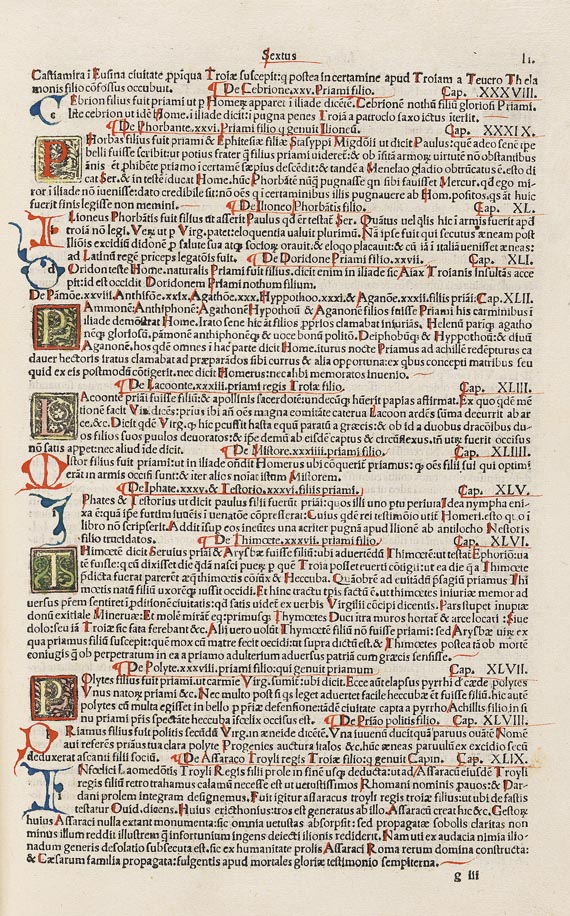 Sextus li.
Castiamira i Eusina ciuitate ꝓpiqua Troiæ suscepit: q postea in certamine apud Troiam a Teucro Thela
monis filio cōfossus occubuit. De Cebrione.xxv. Priami filio. Cap. XXXVIII.
CEbrion filius fuit priami ut p Homerū apparet i iliade dicētē. Cebrionē nothū filiū gloriosi Priami.
Iste cebrion ut idē Home. i iliade dicit: i pugna penes Troiā a patroclo saxo ictus iterlit.
De Phorbante.xxvi. Priami filio q genuit Ilioneū. Cap. XXXIX.
PHorbas filius fuit priami & Ephitesiæ filiæ Stasyppi Migdōii ut dicit Paulus: quē adeo senē ipe
belli fuisse scribitur potius frater q̄ filius priami uideret: & ob istā armorꝫ uirtutē nō obstantibus
ānis et phibēte priamo i certamē sæpius descēdit: & tandē a Menelao gladio obtrūcatus ē. esto di
cat Ser. & in teste iducat Home. hūc Phorbātē nūq̄ pugnasse qn sibi fauisset Mercur. qd ego mi-
ror i iliade nō iuenisse: dato credibile sit: nō eēs ex uiribus certantibus illis pugnauere ab Hom. positos. qs āt huic
fuerit finis legisse non memini. De Ilioneo Phorbātis filio. Cap. XL.
ILioneus Phorbātis fuit filius uti asserit Paulus qd er testāt Ser. Quātus uel q̄lis hic i armis fuerit apd
troiā nō legi. Verꝫ ut p Virg. patet: eloquentia ualuit plurimū. Nā ipse fuit qui secutus æneam post
Iliōis excidiū didonē p salute sua atq sociorꝫ orauit. & eloq̄o placauit: & cū iā i italiā uenisset æneas:
ad Latinū regē priceps legatōis fuit. De Doridone Priami filio.xxvii. Cap. XLI.
DOridon teste Home. naturalis Priami fuit filius. dicit enim in iliade sic Aiax Troianis insultās acce
pit: id est occidit Doridonem Priami nothum filium.
De Pāmōe.xxviii. Anthifōe.xxix. Agathōe.xxx. Hyppothoo.xxxi. & Aganōe.xxxii. filiis priāi: Cap. XLII.
PAmmonē: Anthiphonē: Agathonē Hypothoū & Aganonē filios fuisse Priami his carminibus i
iliade demōstrat Home. Irato sene hic āt filios ꝓprios clamabat iniuriās, Helenū pariqꝫ agatho
neqꝫ gloriosū. pāmonē anthiphonēqꝫ & uoce bonū politō. Deiphobūqꝫ & Hyppothoū: & diuū
Aganonē. hos q̄dē omnes i hāc partē dicit Home. iturus nocte Priamus ad achillē redēpturus ca
dauer hectoris iratus clamabat ad præparādos sibi currus & alia opportuna: ex qbus concepti matribus seu
quid ex eis postmodū cōtigerit. nec dicit Homerus: nec alibi memoratos inuenio.
De Lacoonte.xxxiii. priami regis Troiæ filio. Cap. XLIII.
LAcoonte priāi fuisse filiū: & apollinis sacerdotē: undecūqꝫ hūerit papias affirmat. Ex quo qdē mē
tionē facit Vir. dicēs: prius ibi añ oēs magna comitāte caterua Lacoon ardēs sūma decurrit ab ar
ce. &c. Dicit qdē Virg. qꝫ hic pcussit hasta equū paratū a græcis: & ob id a duobus dracōibus du-
os filios suos puulos deuoratos: & ipē demū ab eisdē captus & circūflexus. tñ utrꝫ fuerit occisus
nō satis appet: nec aliud ide dicit. De Mistore.xxxiiii. priami filio. Cap. XLIIII.
MIstor filius fuit priami: ut in iliade ondit Homerus ubi cōquerit priamus: qꝫ oēs filii sui qui optimi
erāt in armis occisi sunt: & iter alios noīat istum Mistorem.
De Iphate.xxxv. & Testorio.xxxvi. filiis priami. Cap. XLV.
IPhates & Testorius ut dicit paulus filii fuerūt priāi: quos illi uno ptu periura Idea nympha enixa
ē: qua ipē futtim iuuēis i uenatōe cōpresserat: Cuius qdē rei testimōio utif Homeri. esto quo i
libro nō scripserit. Addit isup eos ineūtes una acriter pugnā apud Ilionē ab antilocho Nestoris
filio trucidatos. De Thimœte.xxxvii. priami filio. Cap. XLVI.
THimœtē dicit Seruius priāi & Arysbæ fuisse filiū: ubi aduertēdū Thimœtē: ut testāt Ephoriō: ua
tē fuisse: q cū dixisset die qdā nasci puerꝫ p quē Troia posset euerti cōtigit: ut ea die qꝫ a Thimœte
p̄dicta fuerat parerēt æq thimœtis cōiūx & Heccuba. Quāobrē ad euitādū p̄sagiū priamus Thi
mœtis natū filiū uxorēqꝫ iussit occidi. Et hinc tractu tpis factū ē. ut thimœtes iniuriæ memor ad
uersus pfēm sentiret: p̄ditionē ciuitatis: qd satis uidet ex uerbis Virgilii cēcipi dicentis. Pars stupet inuptæ
donū exitiale Mineruæ: Et molē mirāt eq: primusqꝫ Thymœtes Duci itra muros hortat & arce locari: Siue
dolo: seu iā Troiæ sic fata ferebant &c. Alii uero uolūt Thymœtē filiū nō fuisse priami: sed Arysbæ uirꝫ ex
qua priamus filiū suscepit: quē mox cū matre fecit occidi: ut supra dictū est. & Thimœtes postea tā ob morte
coniugis q̄ ob perpetratum in ea a priamo adulterium aduersus patriā cum græcis sensisse.
De Polyte.xxxviii. priami filio: qui genuit priamum Cap. XLVII.
POlytes filius fuit priami. ut carmie Virg. sumit: ubi dicit. Ecce aūt elapsus pyrrhi d' cæde polytes
Vnus natorꝫ priami &c. Nec multo post si qs leget aduertet facile heccubæ et fuisse filiū. hic autē
polytes cū multa egisset in bello p priæ defensione: tādē ciuitate capta a pyrrho Achillis filio. in si
nu priami pris spectāte heccuba īfœlix occisus est. De Priāo politis filio. Cap. XLVIII.
PRiamus filius fuit politis secūdū Virg. in æneide dicētē. Vna iuuenū ducit quā paruus ouātē Nomē
aui referēs priāus tua clara polyte Progenies auctura italos &c. hūc æneas paruulū ex excidio secū
deduxerat ascanii filii sociū. De Assaraco Troyli regis Troiæ filio: q genuit Capin. Cap. XLIX.
INfœlici Laomedōtis Troyli Regis filii prole in finē usqꝫ deducta: ut ad Assaracū eiusdē Troyli
regis filiū retro trahamus calamū necesse est ut uetostissimos Rhomani nominis pauos: & Dar-
dani prolem integram designemus. Fuit igitur assaracus troyli regis troiæ filius: ut ubi de fastis
testatur Ouid. dicens. Huius ericthonius: tros est generatus ab illo. Assaracū creat hic &c. Gestorꝫ
huius Assaraci nulla extant monumenta: sic omnia uetustas absorpsit: sed propagatæ sobolis claritas non
minus illum reddit illustrem q̄ infortunium ingens deiecti ilionis redident. Nam uti ex audacia nimia ilio-
nadum generis desolatio subsecuta est. sic ex humanitate prolis Assaraci Roma rerum domina constructa:
& Cæsarum familia propagata: fulgentis apud mortales gloriæ testimonio sempiterna.
g iii